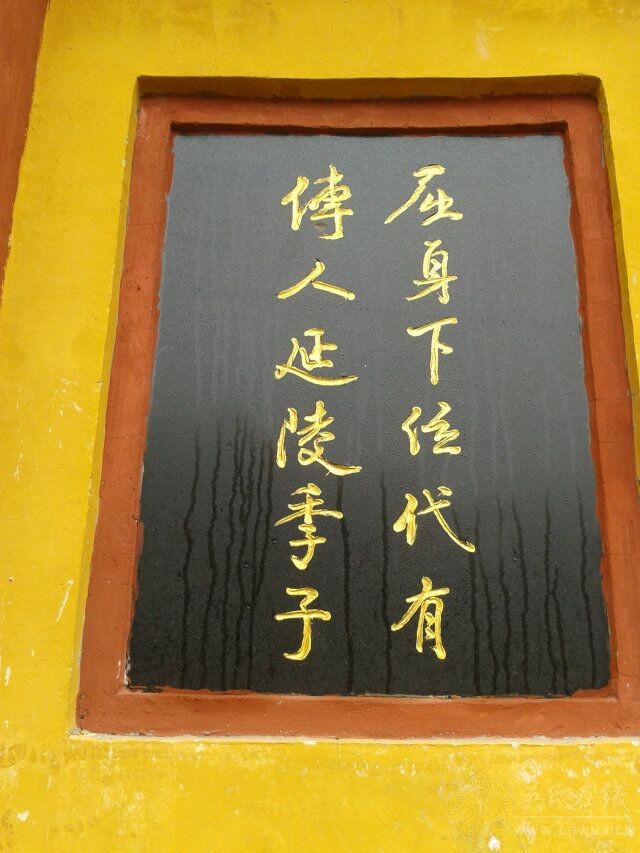 屈身下位代有
傅人延陵季子